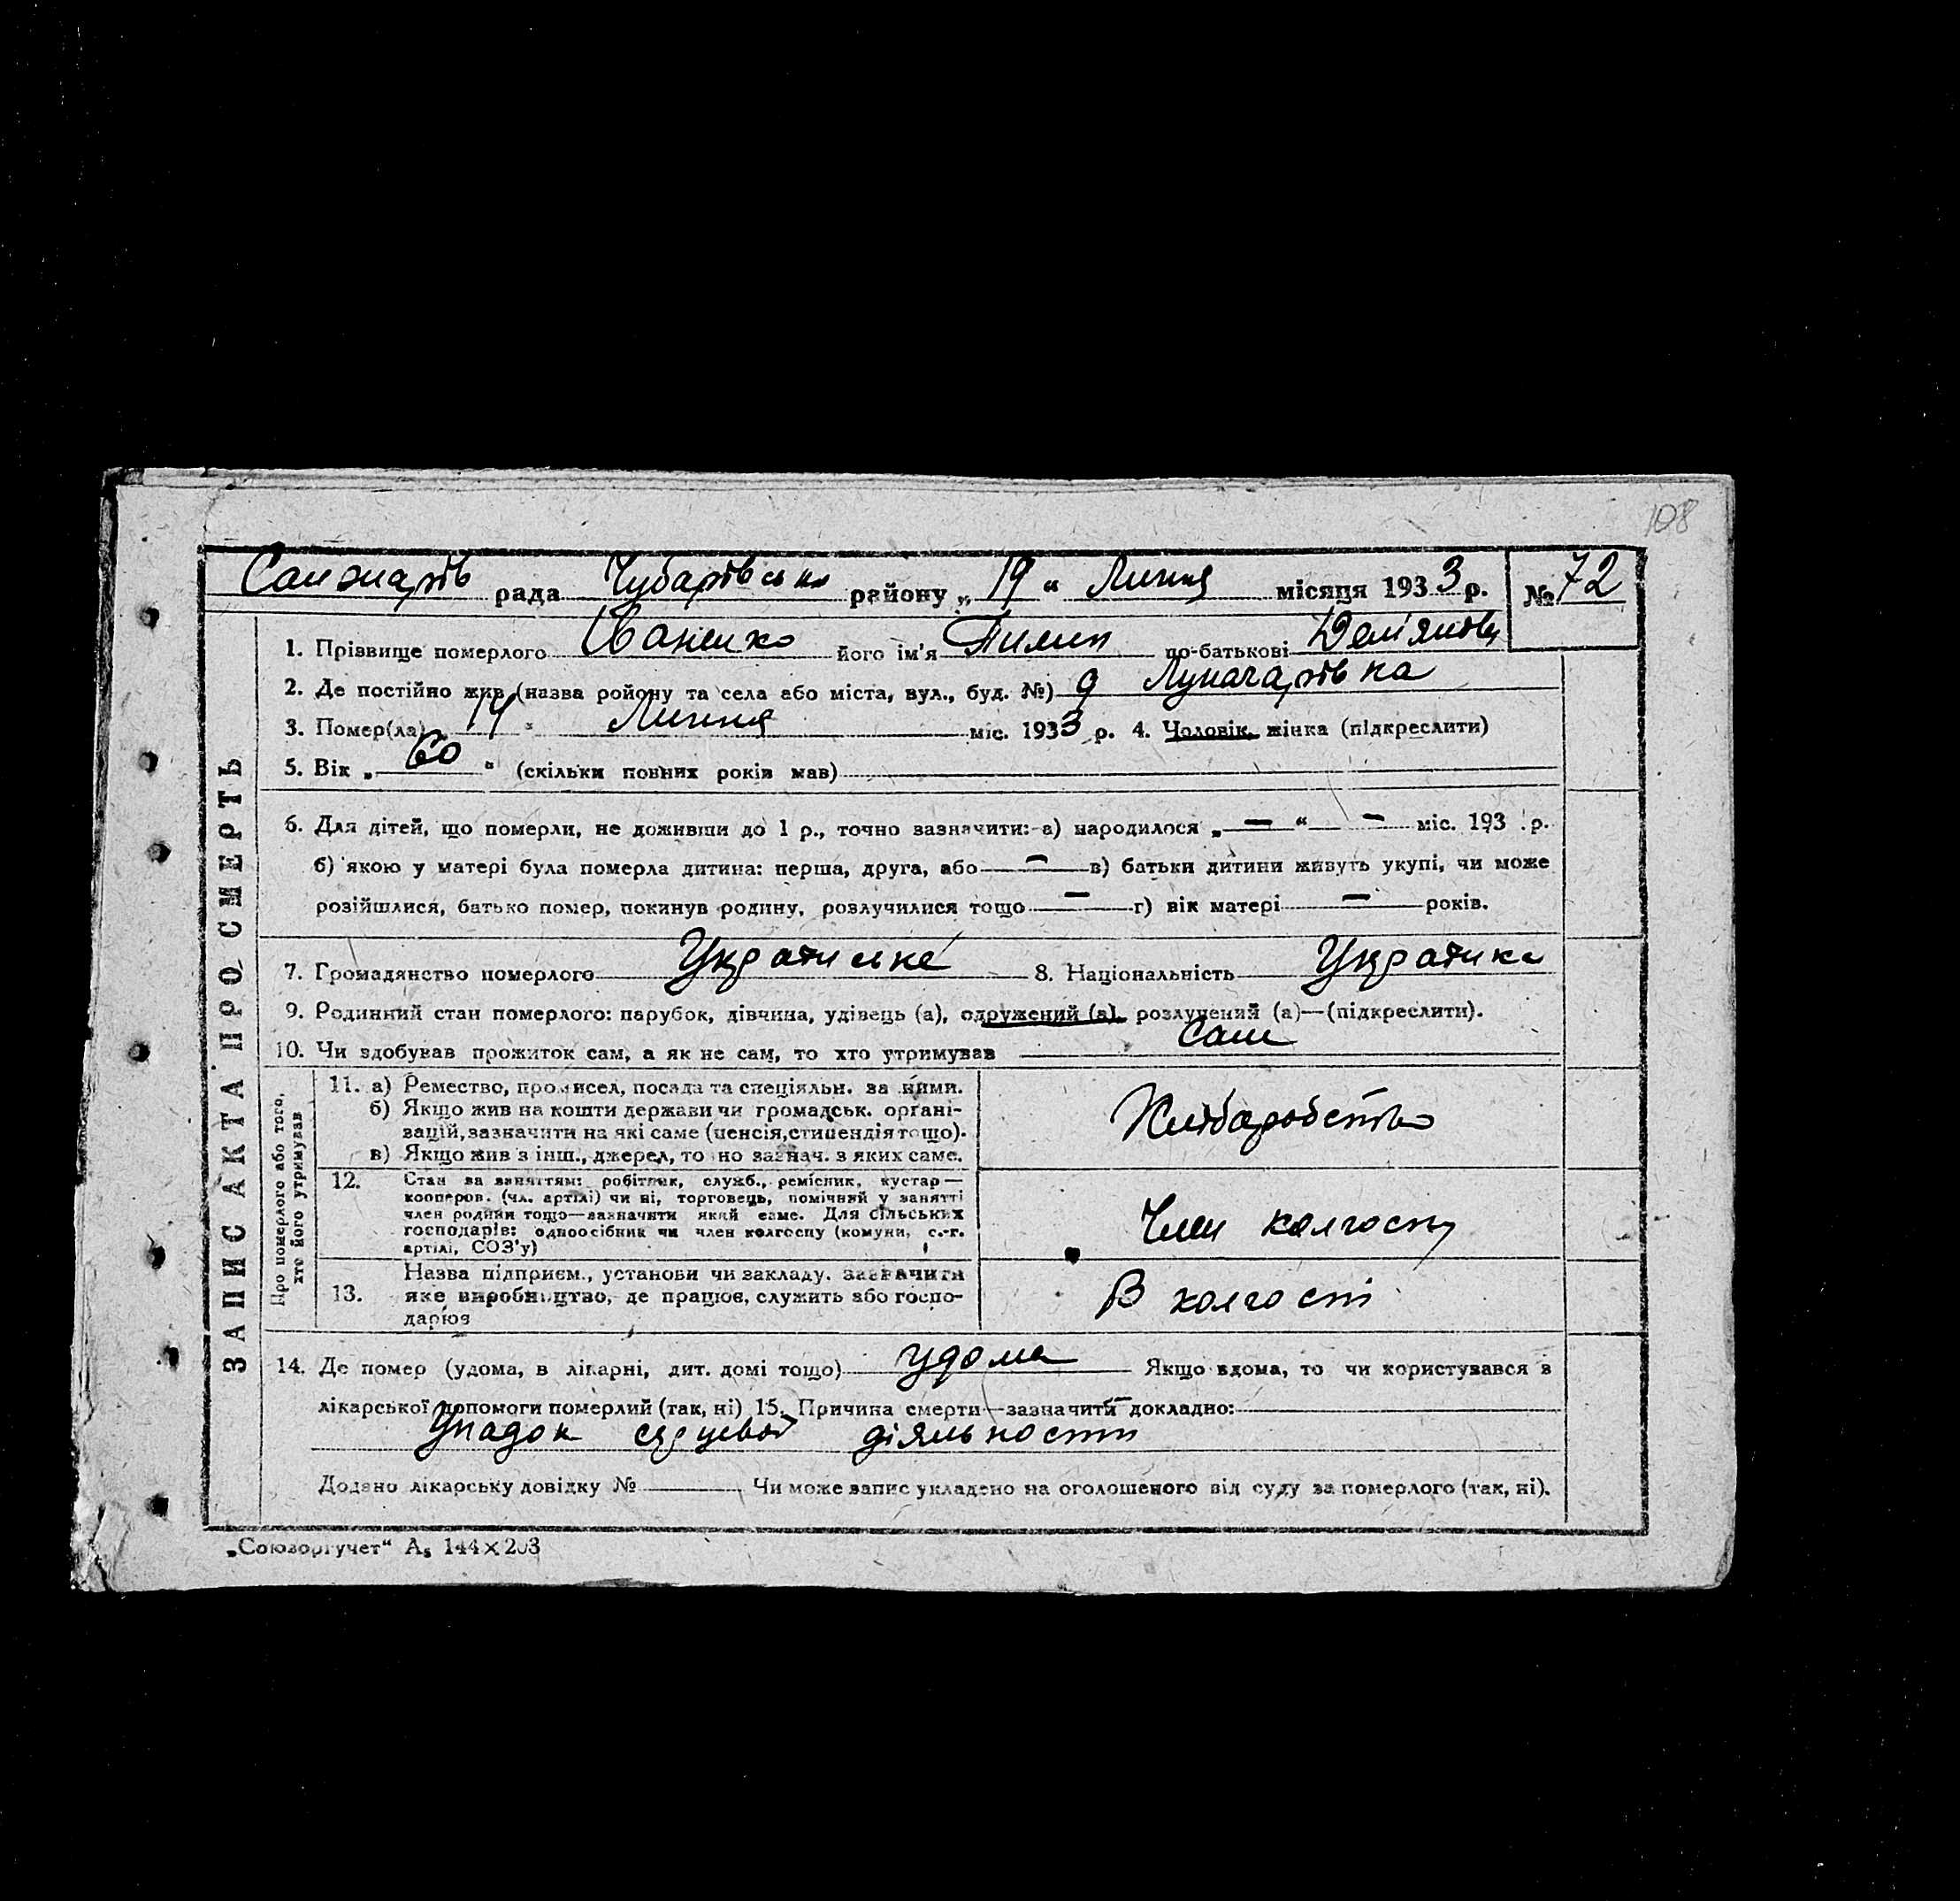 108
Санжарів рада Чубарівськ району „19“ Липня місяця 1933 р. № 72
1. Прізвище померлого Іваненко його ім'я Пимин по-батькові Дем'янов
2. Де постійно жив (назва ройону та села або міста, вул., буд. №) Луначарівка
3. Помер(ла) 14 " Липня міс. 1933 р. 4. Чоловік, жінка (підкреслити)
5. Вік „ 60 " (скільки повних років мав)
6. Для дітей, що померли, не доживши до 1 р., точно зазначити:-а) народилося „ — “ — міс. 193 р.
б) якою у матері була померла дитина: перша, друга, або — в) батьки дитини живуть укупі, чи може
розійшлися, батько помер, покинув родину, розлучилися тощо — г) вік матері — років.
7. Громадянство померлого Українське 8. Національність Українка
9. Родинний стан померлого: парубок, дівчина, удівець (а), одружений (а), розлучений (а)—(підкреслити).
10. Чи здобував прожиток сам, а як не сам, то хто утримував Сам
ЗАПИС АКТА ПРО СМЕРТЬ
Про померлого або того,
хто його утримував
11. а) Ремество, промисел, посада та спеціяльн. за ними.
б) Якщо жив на кошти держави чи громадськ. органі-
зацій, зазначити на які саме (пенсія, стипендія тощо).
в) Якщо жив з інш., джерел, то но зазнач. з яких саме.
Хліборобство
12. Стан за заняттям: робітник, служб., ремісник, кустар—
кооперов. (чл. артілі) чи ні, торговець, помічний у занятті
член родини тощо—зазначити який саме. Для сільських
господарів: одноосібник чи член колгоспу (комуни, с.-г.
артілі, СОЗ'у)
Член колгоспу
13. Назва підприєм., установи чи закладу. зазначити
яке виробництво, де працює, служить або госпо-
дарює
В колгоспі
14. Де помер (удома, в лікарні, дит. домі тощо) удома Якщо вдома, то чи користувався в
лікарської допомоги померлий (так, ні) 15. Причина смерти—зазначити докладно:
Упадок серцевої діяльности
Додано лікарську довідку № Чи може запис укладено на оголошеного від суду за померлого (так, ні).
„Союзоргучет“ А₅ 144×203